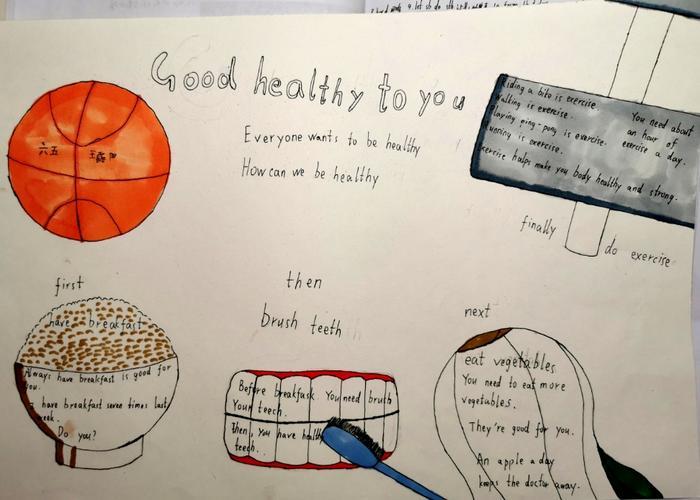 Good healthy to you
Everyone wants to be healthy
How can we be healthy
六五
Riding a bite is exercise.
Walking is exercise.
Playing ping-pong is exercise.
Running is exercise.
Exercise helps make you body healthy and strong.
You need about
an hour of
exercise a day.
finally
do exercise
first
have breakfast
Always have breakfast is good for
you.
I have breakfast seven times last
week.
Do you?
then
brush teeth
Before breakfast You need brush
Your teech.
Then, you have health
teech.
next
eat vegetables
You need to eat more
vegetables.
They're good for you.
An apple a day
keeps the doctor away.